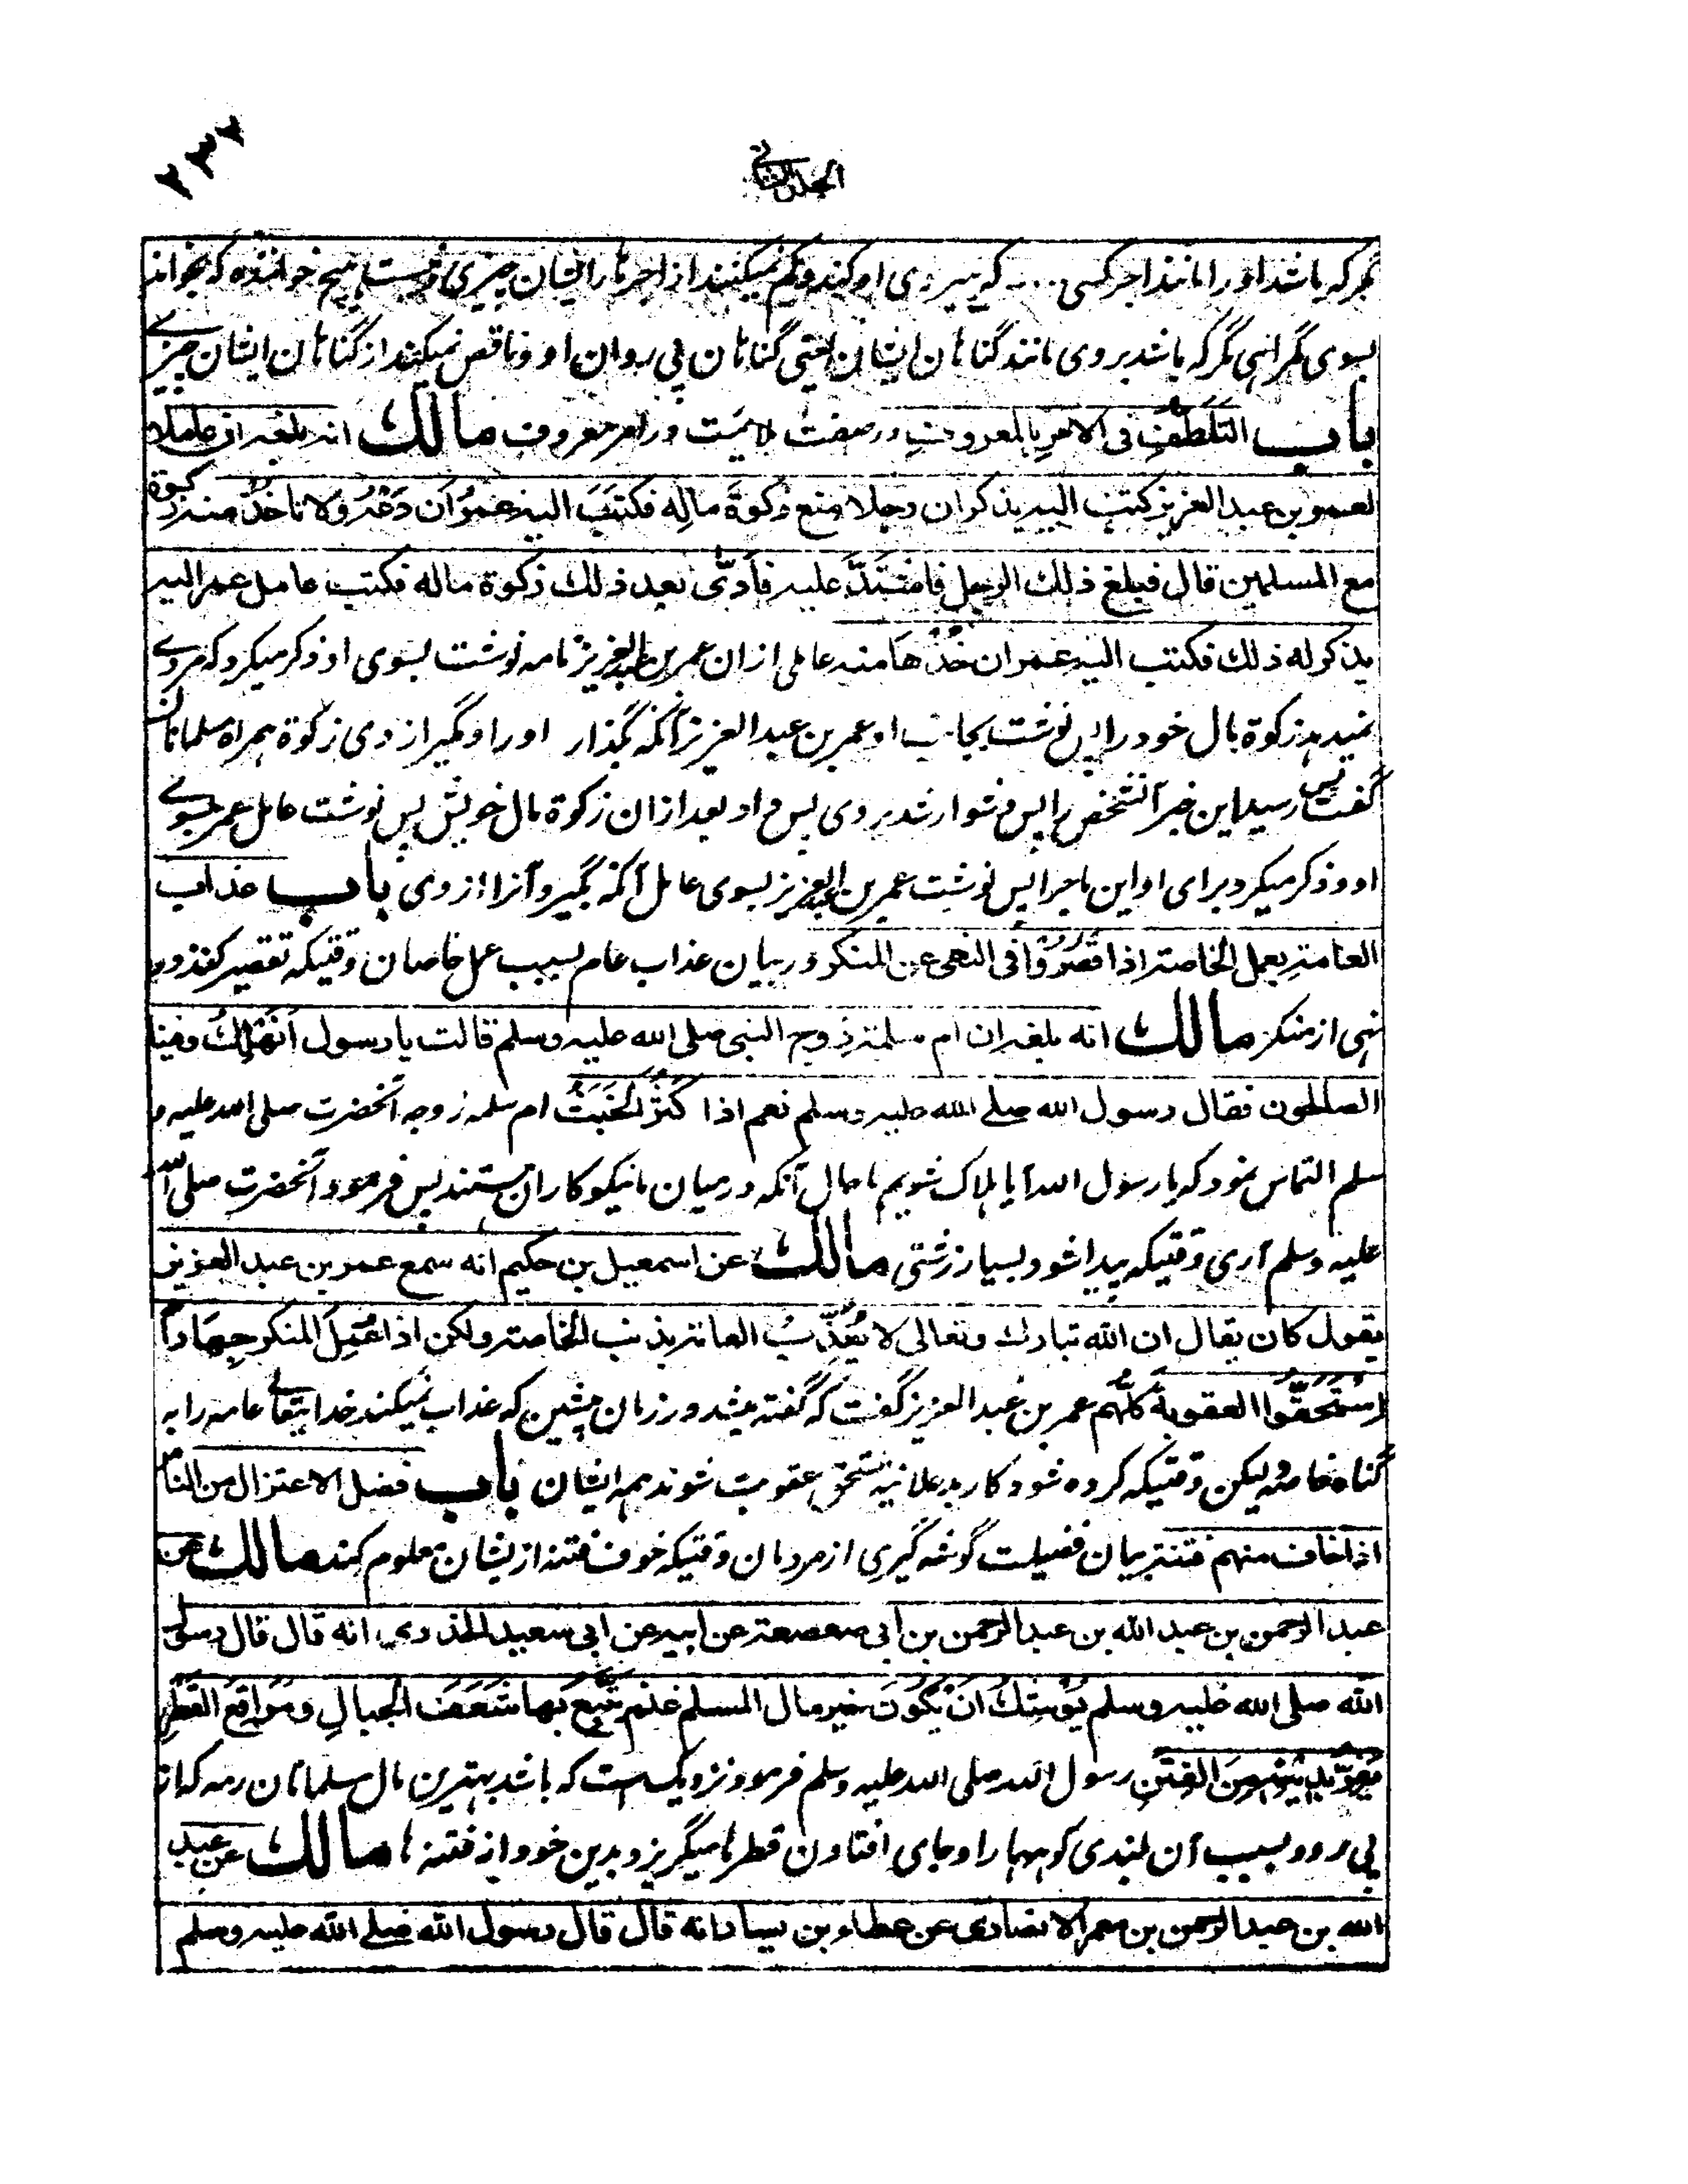 ۲۳۲
الجلد الثانی
مگر که باشد او را مانند اجر کسی ... که پیروی او کند و کم نمیکنند از اجرهای ایشان چیزی و نیست هیچ خواننده که بخواند
بسوی گمراهی مگر که باشد بروی مانند گناهان ایشان یعنی گناهان پی روان او و ناقص نمیکند از گناهان ایشان چیزے
باب التَّلَطُّفِ فی الامرِ بالمعروفِ در صفت ملایمت در امر معروف مالك انه بلغه ان عاملا
لعمر بن عبد العزیز کتب الیه یذکر ان رجلا منع زکوةَ مالِه فکتَبَ الیه عمرُ ان دَعْهُ ولا تاخذْ منه زکوة
مع المسلمین قال فبلغ ذلك الرجل فاشتَدَّ علیه فأدّی بعد ذلك زکوة ماله فکتب عامل عمر الیه
یذکر له ذلك فکتب الیه عمر ان خُذْهَا منه عاملی از ان عمر بن عبد العزیز نامه نوشت بسوی او ذکر میکرد که مردے
نمیدهد زکوة مال خود را پس نوشت بجانب او عمر بن عبد العزیز آنکه بگذار او را و مگیر از وی زکوة همراه مسلمانان
گفت پس رسید این خبر آنشخص را پس دشوار شد بروی پس داد بعد ازان زکوة مال خویش پس نوشت عامل عمر بسوے
او و ذکر میکرد برای او این ماجرا پس نوشت عمر بن عبد العزیز بسوی عامل آنکه بگیر و آنرا از وی باب عذاب
العامةِ بعمل الخاصة اذا قصَّرُوْا فی النهی عن المنکر در بیان عذاب عام بسبب عمل خاصان وقتیکه تقصیر کنند در
نهی از منکر مالك انه بلغه ان ام سلمة زوج النبی صلی الله علیه وسلم قالت یا رسول أنَهْلِكُ وفینا
الصالحون فقال رسول الله صلے الله علیه وسلم نعم اذا کَثُرَ الْخَبَثُ ام سلمه زوجه آنحضرت صلی الله علیه و
سلم التماس نمود که یا رسول الله آیا هلاک شویم ما حال آنکه در میان ما نیکوکاران هستند پس فرمود آنحضرت صلی الله
علیه وسلم آری وقتیکه پیدا شود بسیار زشتی مالك عن اسمعیل بن حکیم انه سمع عمر بن عبد العزیز
یقول کان یقال ان الله تبارك وتعالی لا یُعذِّبُ العامة بذنب الخاصة ولکن اذا عُمِلَ المنکر جِهَاراً
اسْتَحَقُّوا العقوبةَ کلُّهم عمر بن عبد العزیز گفت که گفته میشد در زمان پیشین که عذاب نمیکند خدا یتعالے عامه را به
گناه خاصه ولیکن وقتیکه کرده شود کار بد علانیه مستحق عقوبت شوند همه ایشان باب فضل الاعتزال من الناس
اذا خاف منهم فتنة بیان فضیلت گوشه گیری از مردمان وقتیکه خوف فتنه از یشان معلوم کند مالك عن
عبد الرحمن بن عبد الله بن عبد الرحمن بن ابی صعصعة عن ابیه عن ابی سعید الخدری انه قال قال رسول
الله صلی الله علیه وسلم یُوْشِكُ اَنْ یَّکُوْنَ خیر مال المسلم غنم یَتَّبِعُ بها شَعَفَ الجبالِ ومَوَاقِعَ القَطْرِ
یَفِرُّ بِدِیْنِه مِنَ الفِتَنِ رسول الله صلی الله علیه وسلم فرمود نزدیک ست که باشد بهترین مال مسلمانان رمه که از
پی رود بسبب آن بلندی کوهها را و جای افتادن قطرها میگریزد بدین خود از فتنه ها مالك عن عبد
الله بن عبد الرحمن بن معمر الانصاری عن عطاء بن یسار انه قال قال رسول الله صلے الله علیه وسلم